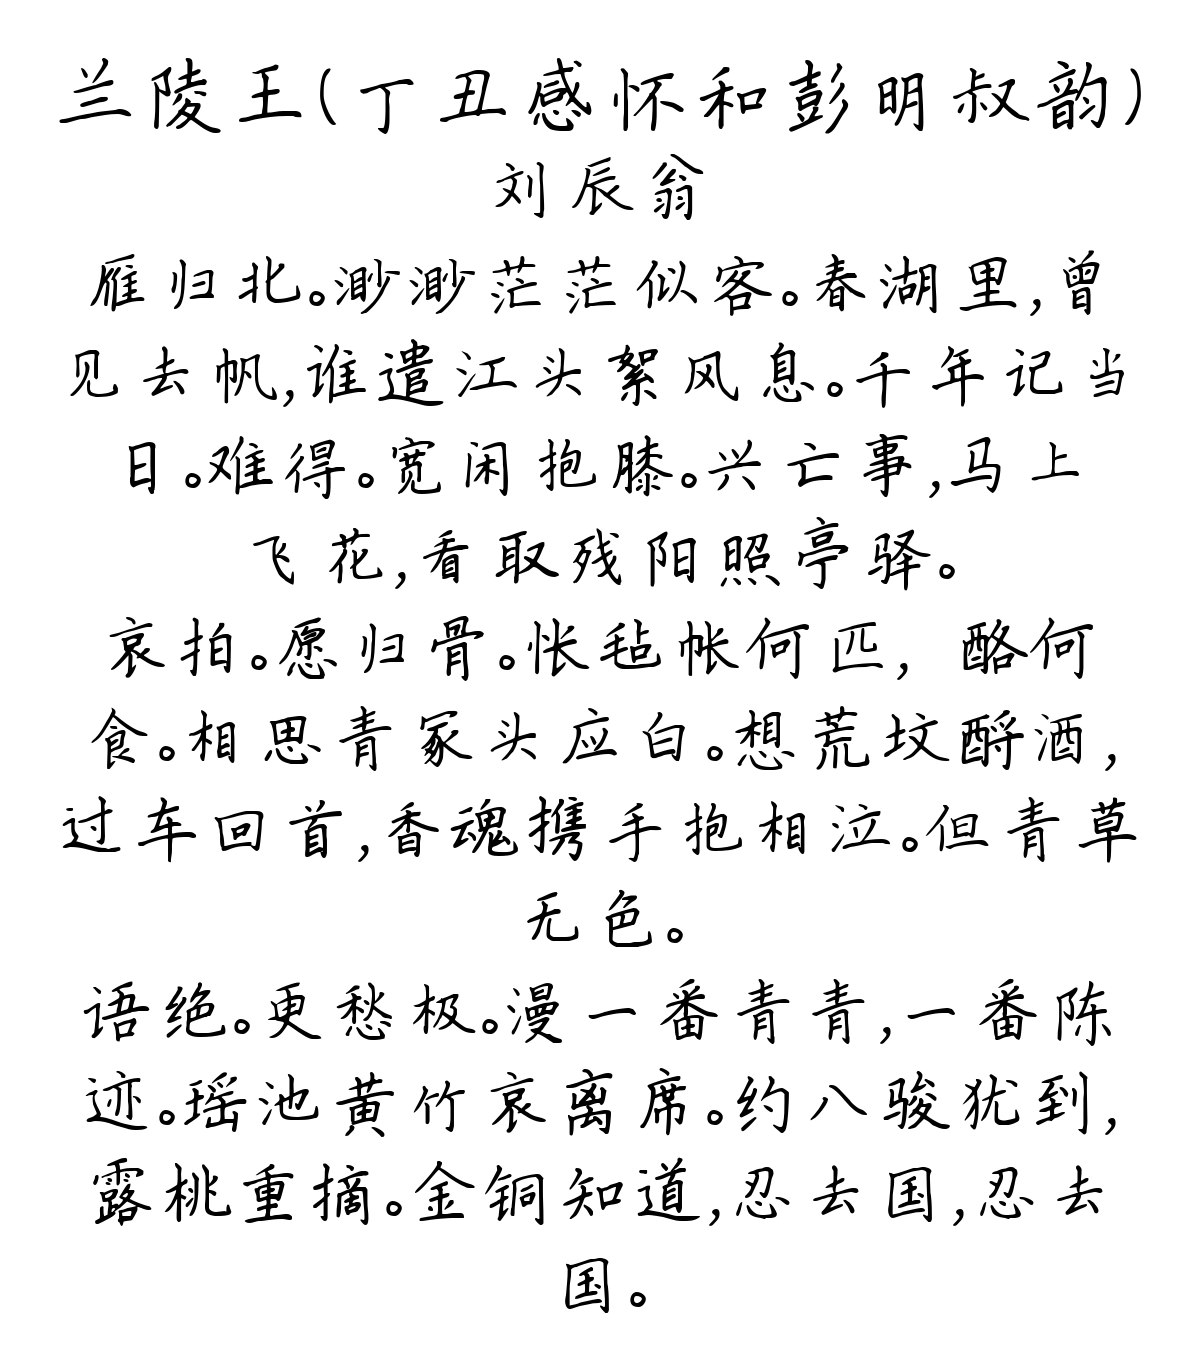 兰陵王(丁丑感怀和彭明叔韵)
刘辰翁
雁归北。渺渺茫茫似客。春湖里,曾
见去帆,谁遣江头絮风息。千年记当
日。难得。宽闲抱膝。兴亡事,马上
飞花,看取残阳照亭驿。
哀拍。愿归骨。怅毡帐何匹,酪何
食。相思青冢头应白。想荒坟酹酒,
过车回首,香魂携手抱相泣。但青草
无色。
语绝。更愁极。漫一番青青,一番陈
迹。瑶池黄竹哀离席。约八骏犹到,
露桃重摘。金铜知道,忍去国,忍去
国。